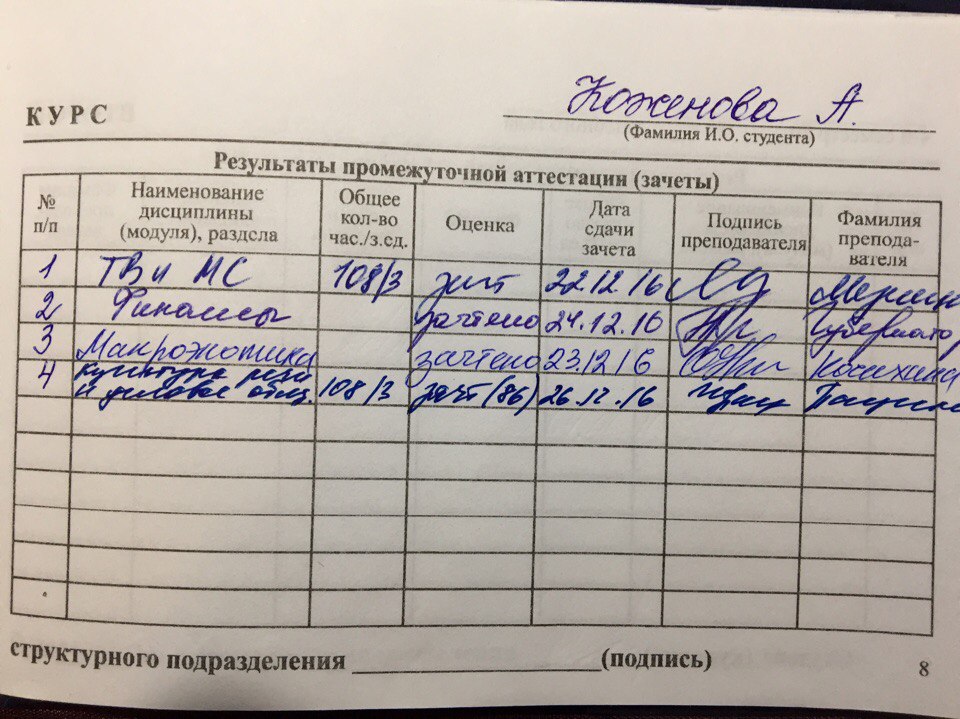 Коженова А.
КУРС
(Фамилия И.О. студента)
Результаты промежуточной аттестации (зачеты)
№ п/п Наименование дисциплины (модуля), раздела Общее кол-во час./з.ед. Оценка Дата сдачи зачета Подпись преподавателя Фамилия препода-вателя
1 ТВ и МС 108/3 зачт 22.12.16
2 Финансы зачтено 24.12.16
3 зачтено 23.12.16
4 культура речи
и деловое общ. 108/3 зачт (86) 26.12.16
структурного подразделения (подпись)
8